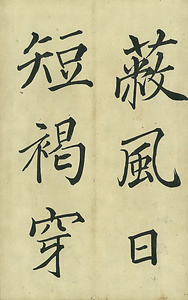 蔽風日
短褐穿